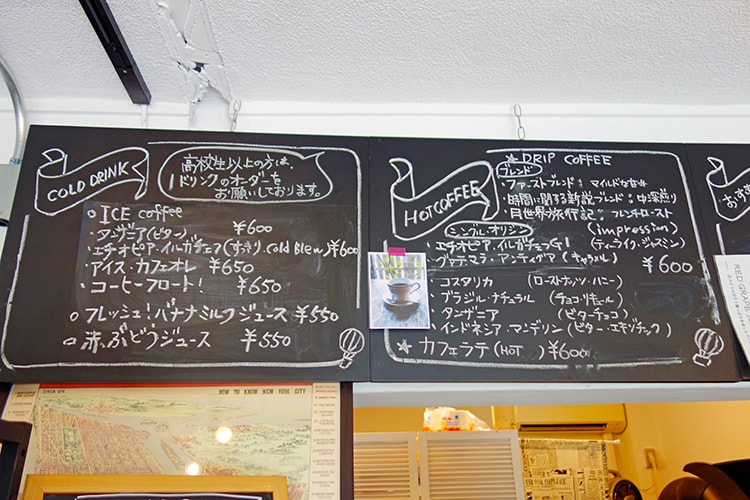 COLD DRINK
高校生以上の方は、
1ドリンクのオーダーを
お願いしております。
ICE coffee
・タンザニア(ビター) ¥600
・エチオピア・イルガチェフ(すっきり、cold Blew) ¥600
・アイス・カフェオレ ¥650
・コーヒーフロート! ¥650
フレッシュ!バナナミルクジュース ¥550
赤ぶどうジュース ¥550
HOT COFFEE
★ DRIP COFFEE
ブレンド
・ファーストブレンド:マイルドな甘み
・時間に関する新説ブレンド:中深煎り
・月世界旅行記:フレンチロースト
シングル・オリジン (impression)
・エチオピア・イルガチェフG1 (ティーライク・ジャスミン)
・グァテマラ・アンティグア (キャラメル)
¥600
・コスタリカ (ローストナッツ・ハニー)
・ブラジル・ナチュラル (チョコ・リキュール)
・タンザニア (ビターチョコ)
・インドネシア マンデリン (ビター・エキゾチック)
★ カフェラテ (HOT) ¥600
おす
RED GRAPE
HOW TO KNOW NEW YORK CITY